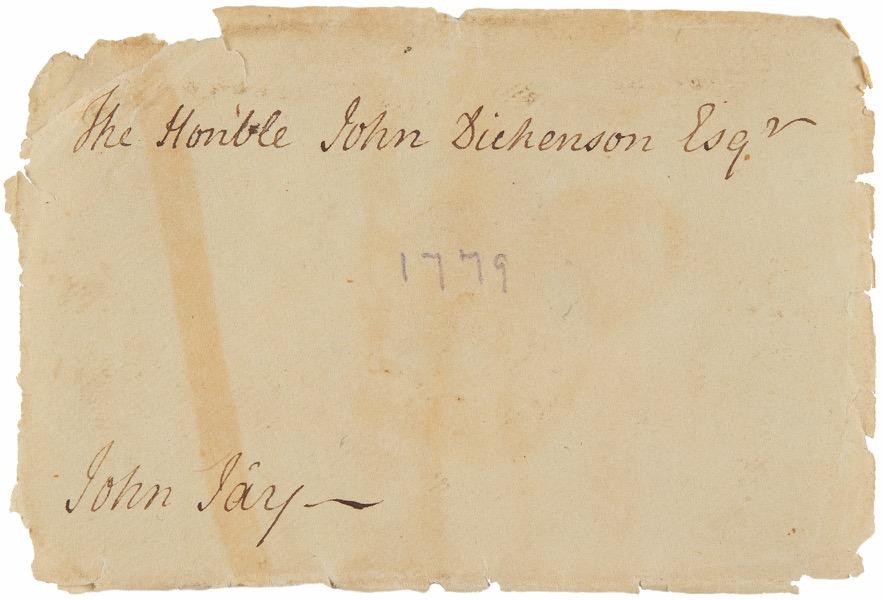 The Hon'ble John Dickenson Esqr
1779
John Jay